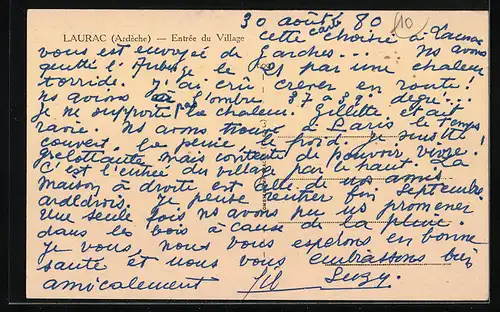 LAURAC (Ardèche) — Entrée du Village
30 août 80
cette carte choisie à Laurac
vous est envoyée de Garches... Ns avons
quitté l'Aube, je le et par une chaleur
torride. J'ai crû crever en route!
ns avions à l'ombre 37 à 39 degr...
je ne supporte pas la chaleur. Gillette était
ravie. Ns avons trouvé à Paris le temps
couvert. La pluie le froid. Je suis
grelottante mais contente de pouvoir vivre!
C'est l'entrée du village par le haut. La
maison à droite est celle de nos amis
ardéchois. Je pense rentrer fin Septembre
Une seule fois ns avons pu ns promener
dans les bois à cause de la pluie.
Je vous, nous vous espérons en bonne
santé et nous vous embrassons bien
amicalement Suzy.